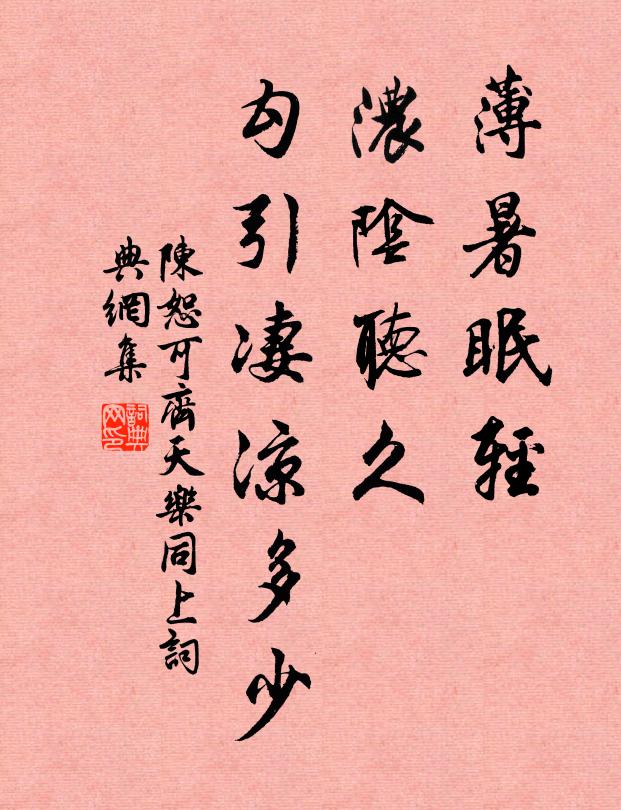 薄暑眠輕
濃陰聽久
勾引凄涼多少
陳恕可齊天樂同上詞
典網集
詞典
网印